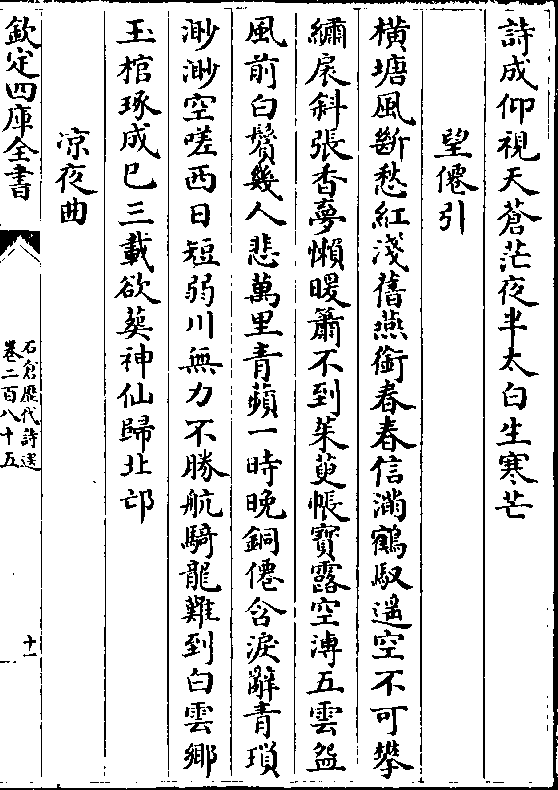 詩成仰視天蒼茫夜半太白生寒芒
望僊引
橫塘風斷愁紅淺舊燕銜春春信滿鶴馭遥空不可攀
繡扆斜張香夢懶暖簫不到茱萸帳寶露空漙五雲盌
風前白鬢幾人悲萬里青蘋一時晚銅僊含淚辭青瑣
渺渺空嗟西日短弱川無力不勝航騎龍難到白雲鄉
玉棺琢成巳三載欲葬神仙歸北邙
凉夜曲
欽定四庫全書
石倉歷代詩選
卷二百八十五
十一